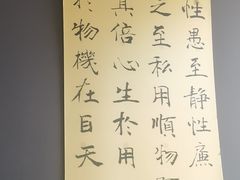 性愚至靜性廉
之至私用順物
其倍心生於用
於物機在目天